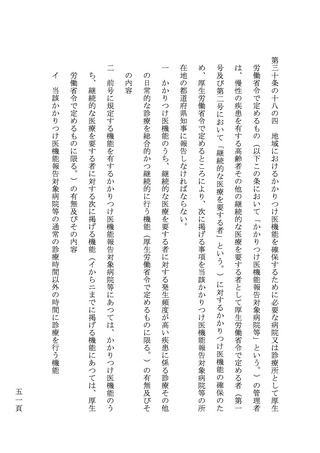 第三十条の十八の四　地域におけるかかりつけ医機能を確保するために必要な病院又は診療所として厚生
労働省令で定めるもの（以下この条において「かかりつけ医機能報告対象病院等」という。）の管理者
は、慢性の疾患を有する高齢者その他の継続的な医療を要する者として厚生労働省令で定める者（第一
号及び第二号において「継続的な医療を要する者」という。）に対するかかりつけ医機能の確保のた
め、厚生労働省令で定めるところにより、次に掲げる事項を当該かかりつけ医機能報告対象病院等の所
在地の都道府県知事に報告しなければならない。
一　かかりつけ医機能のうち、継続的な医療を要する者に対する発生頻度が高い疾患に係る診療その他
の日常的な診療を総合的かつ継続的に行う機能（厚生労働省令で定めるものに限る。）の有無及びそ
の内容
二　前号に規定する機能を有するかかりつけ医機能報告対象病院等にあつては、かかりつけ医機能のう
ち、継続的な医療を要する者に対する次に掲げる機能（イからニまでに掲げる機能にあつては、厚生
労働省令で定めるものに限る。）の有無及びその内容
イ　当該かかりつけ医機能報告対象病院等の通常の診療時間以外の時間に診療を行う機能
五一頁